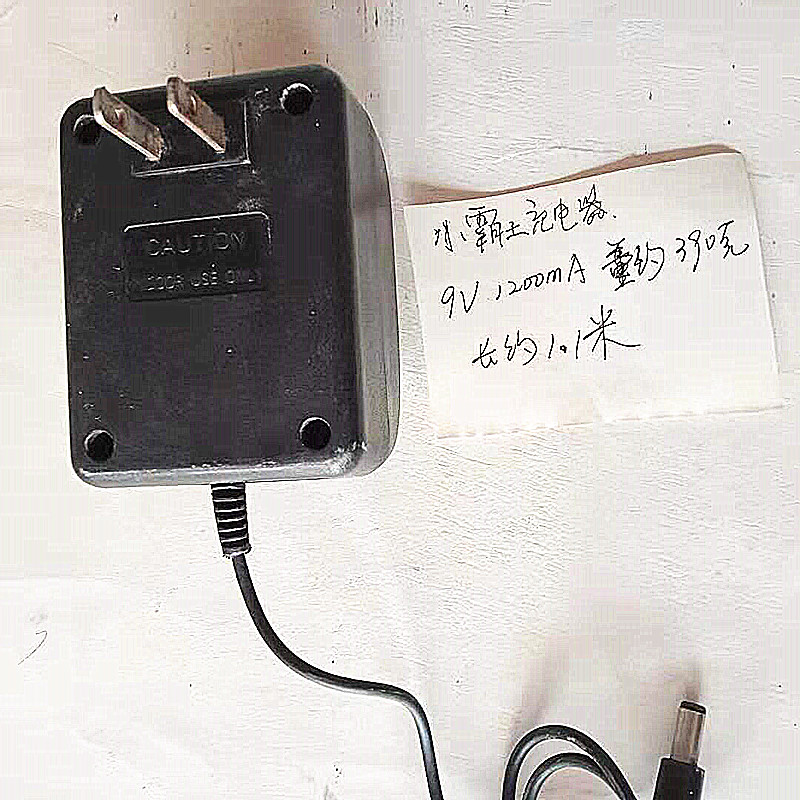 CAUTION
DOOR USE ONLY
小霸王充电器.
9V 1200mA 重约390克
长约1.1米